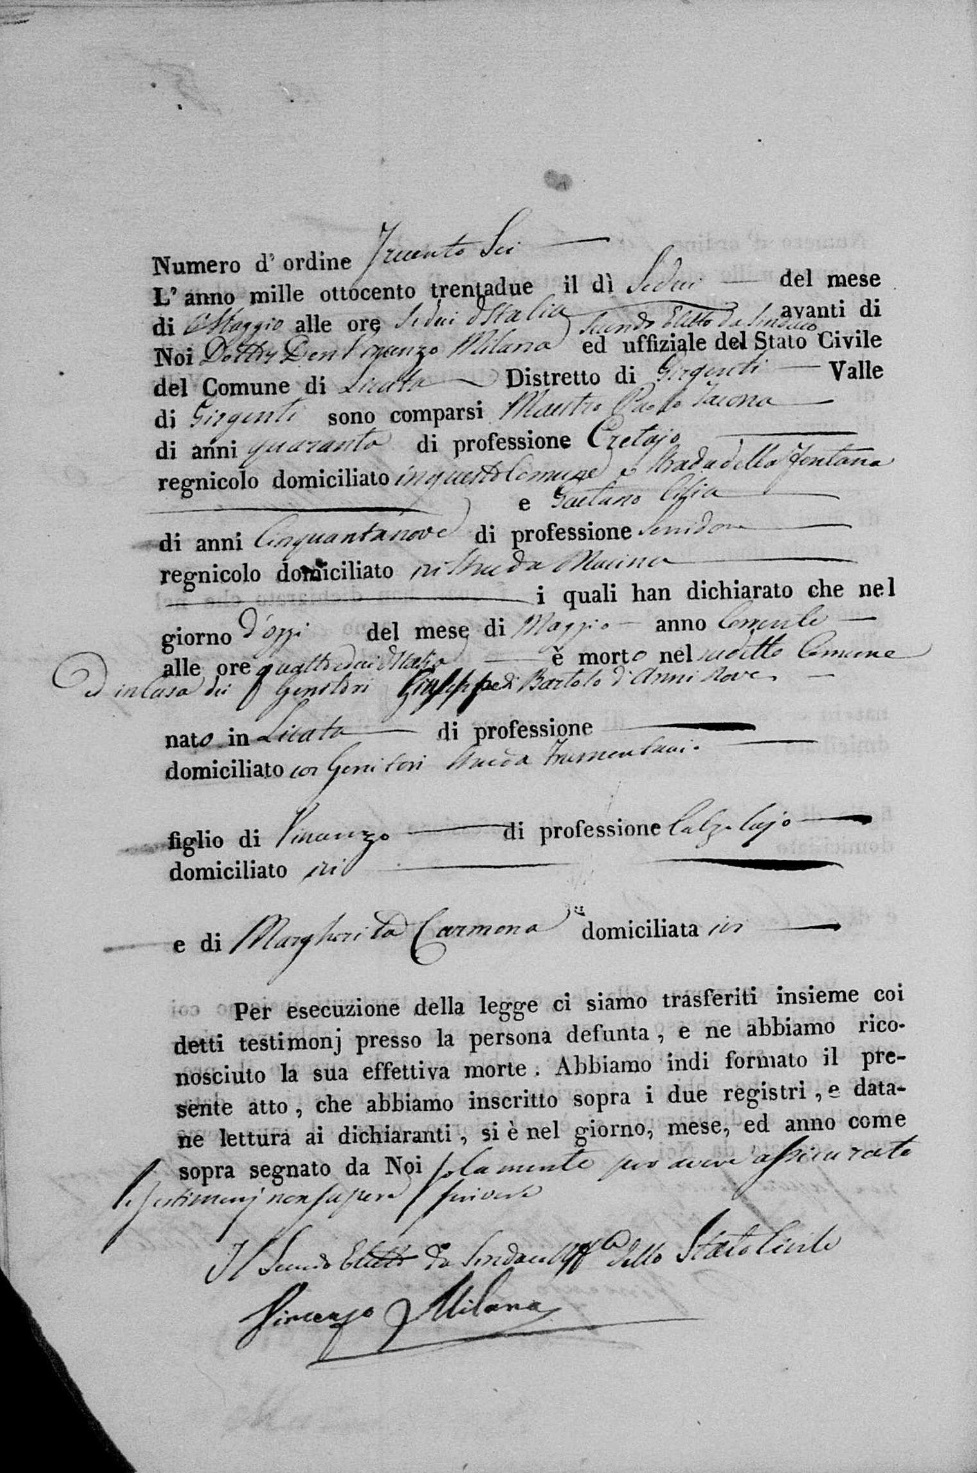 Numero d' ordine Trecento Sei
L' anno mille ottocento trentadue il dì Sedici del mese
di Maggio alle ore Sedici d'Italia avanti di
Noi Dottor Don Vincenzo Milana Secondo Eletto da Sindaco ed uffiziale del Stato Civile
del Comune di Licata Distretto di Girgenti Valle
di Girgenti sono comparsi Maestro Paolo
di anni quaranta di professione Cretajo
regnicolo domiciliato in questo Comune strada della Fontana
e Gaetano
di anni Cinquantanove di professione
regnicolo domiciliato ivi strada Marina
i quali han dichiarato che nel
giorno d'oggi del mese di Maggio anno Corrente
alle ore quattordici d'Italia è morto nel sudetto Comune
ed in casa dei Genitori Giuseppe di Bartolo d'Anni Nove
nato in Licata di professione
domiciliato coi Genitori strada
figlio di Vincenzo di professione Calzolajo
domiciliato ivi
e di Margherita Carmona domiciliata ivi
Per esecuzione della legge ci siamo trasferiti insieme coi
detti testimonj presso la persona defunta, e ne abbiamo rico-
nosciuto la sua effettiva morte. Abbiamo indi formato il pre-
sente atto, che abbiamo inscritto sopra i due registri, e data-
ne lettura ai dichiaranti, si è nel giorno, mese, ed anno come
sopra segnato da Noi solamente per avere assicurato
i Testimonj non sapere scrivere
Il Secondo Eletto da Sindaco Uff.le dello Stato Civile
Vincenzo Milana